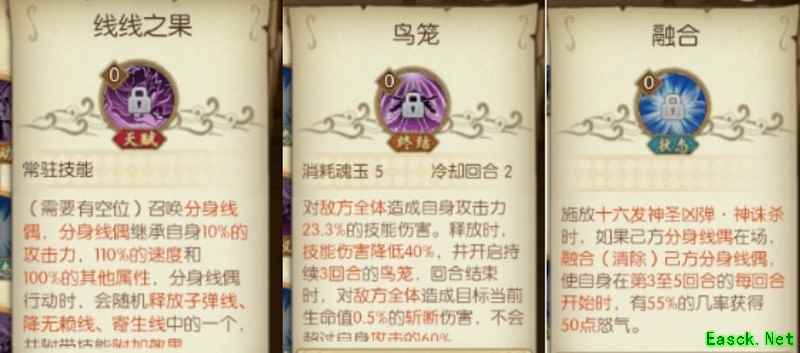 线线之果
0
天赋
常驻技能
（需要有空位）召唤分身线
偶，分身线偶继承自身10%的
攻击力，110%的速度和
100%的其他属性，分身线偶
行动时，会随机释放子弹线、
降无赖线、寄生线中的一个，
并附带技能附加效果
鸟笼
0
终结
消耗魂玉 5 冷却回合 2
对敌方全体造成自身攻击力
23.3%的技能伤害。释放时，
技能伤害降低40%，并开启持
续3回合的鸟笼，回合结束
时，对敌方全体造成目标当前
生命值0.5%的斩断伤害，不会
超过自身攻击的60%
融合
0
被动
施放十六发神圣凶弹·神诛杀
时，如果己方分身线偶在场，
融合（消除）己方分身线偶，
使自身在第3至5回合的每回合
开始时，有55%的几率获得
50点怒气。
Easck.Net